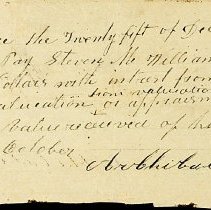 the Twenty fift of Dec
Pay Steven M William
Dollars with intrest from
from valuation
valuation or appraism
Value received of h
October
Archiba